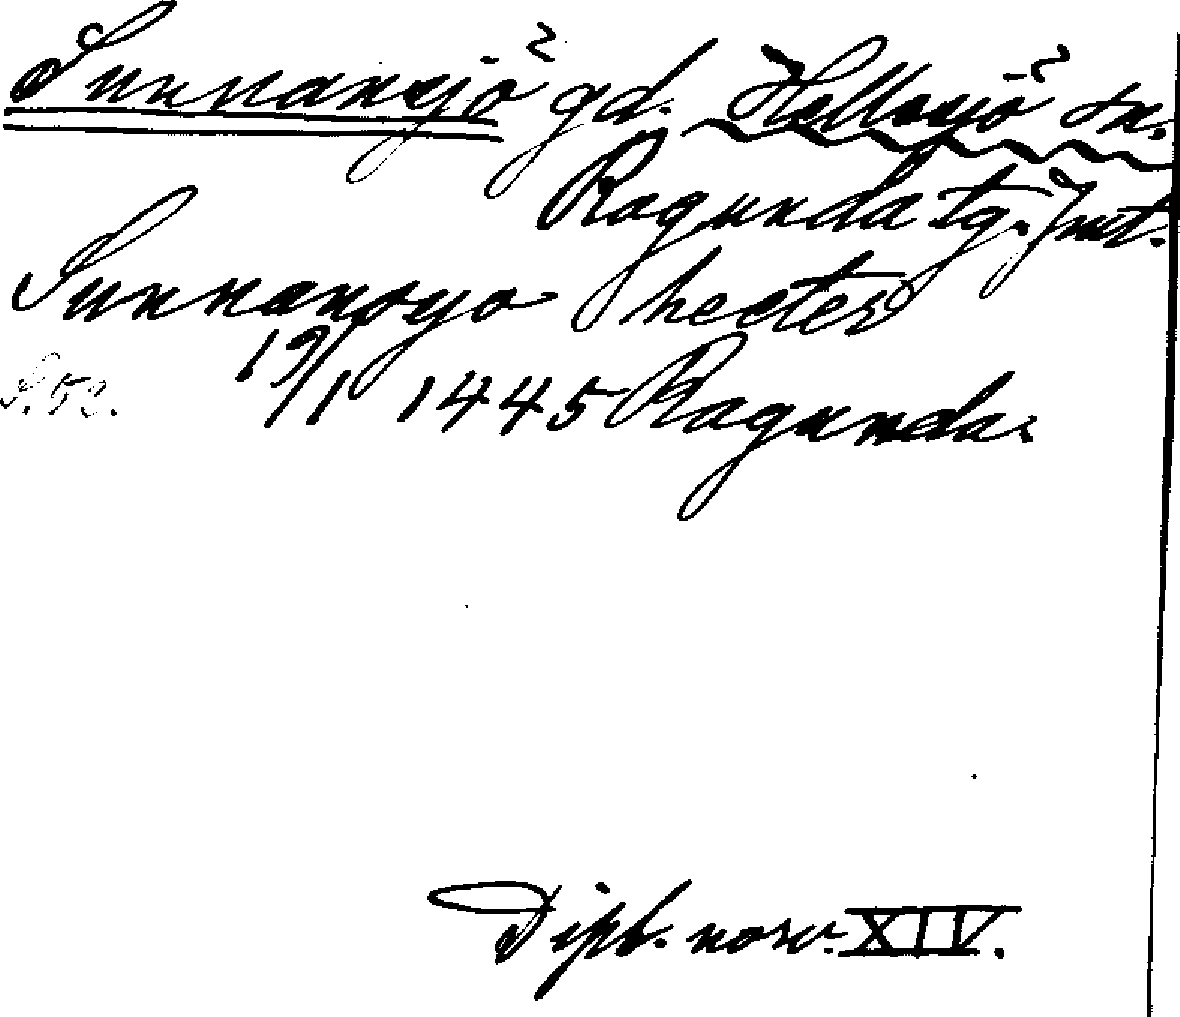 Sunnansjö gd. Hellesjö sn.
Ragunda tg. Jmt.
Sunnansyo heeter
S. 52. 19/1 1445 Ragunda.
Dipl. norv. XIV.